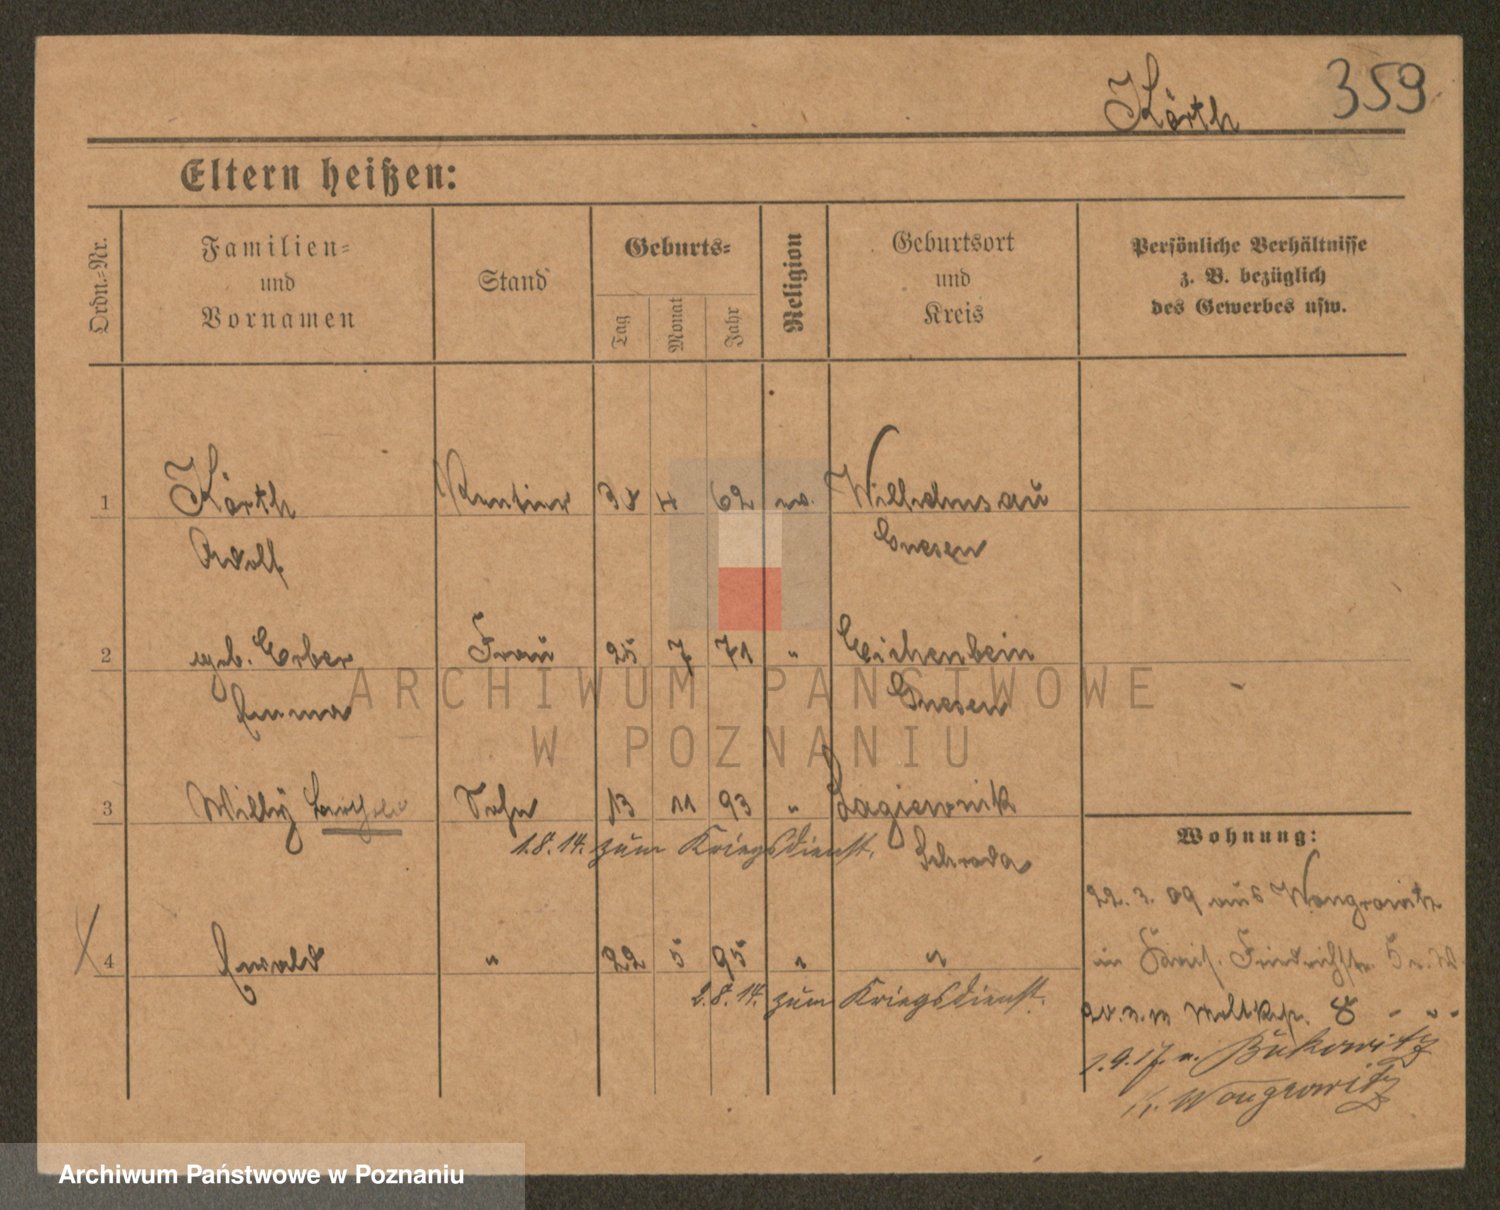 Körth 359
Eltern heißen:
Ordn.-Nr.
Familien-
und
Vornamen
Stand
Geburts-
Tag
Monat
Jahr
Religion
Geburtsort
und
Kreis
Persönliche Verhältnisse
z. B. bezüglich
des Gewerbes usw.
1 Körth Rentier 4 62 ev. Wilhelmsau
Adolf Gnesen
2 geb. Erber Frau 25 7 71 " Eichenbein
Emma Gnesen
3 Willy Berthold Sohn 13 11 93 " Lagiewnik
1.8.14. zum Kriegsdienst. Schroda
4 Ewald " 22 5 95 " "
2.8.14. zum Kriegsdienst.
Wohnung:
22. 3. 09 aus Wongrowitz
Friedrichstr.
Moltkestr. 8 " " "
1.9.17. n. Bukowitz
Kr. Wongrowitz
ARCHIWUM PAŃSTWOWE
W POZNANIU
Archiwum Państwowe w Poznaniu